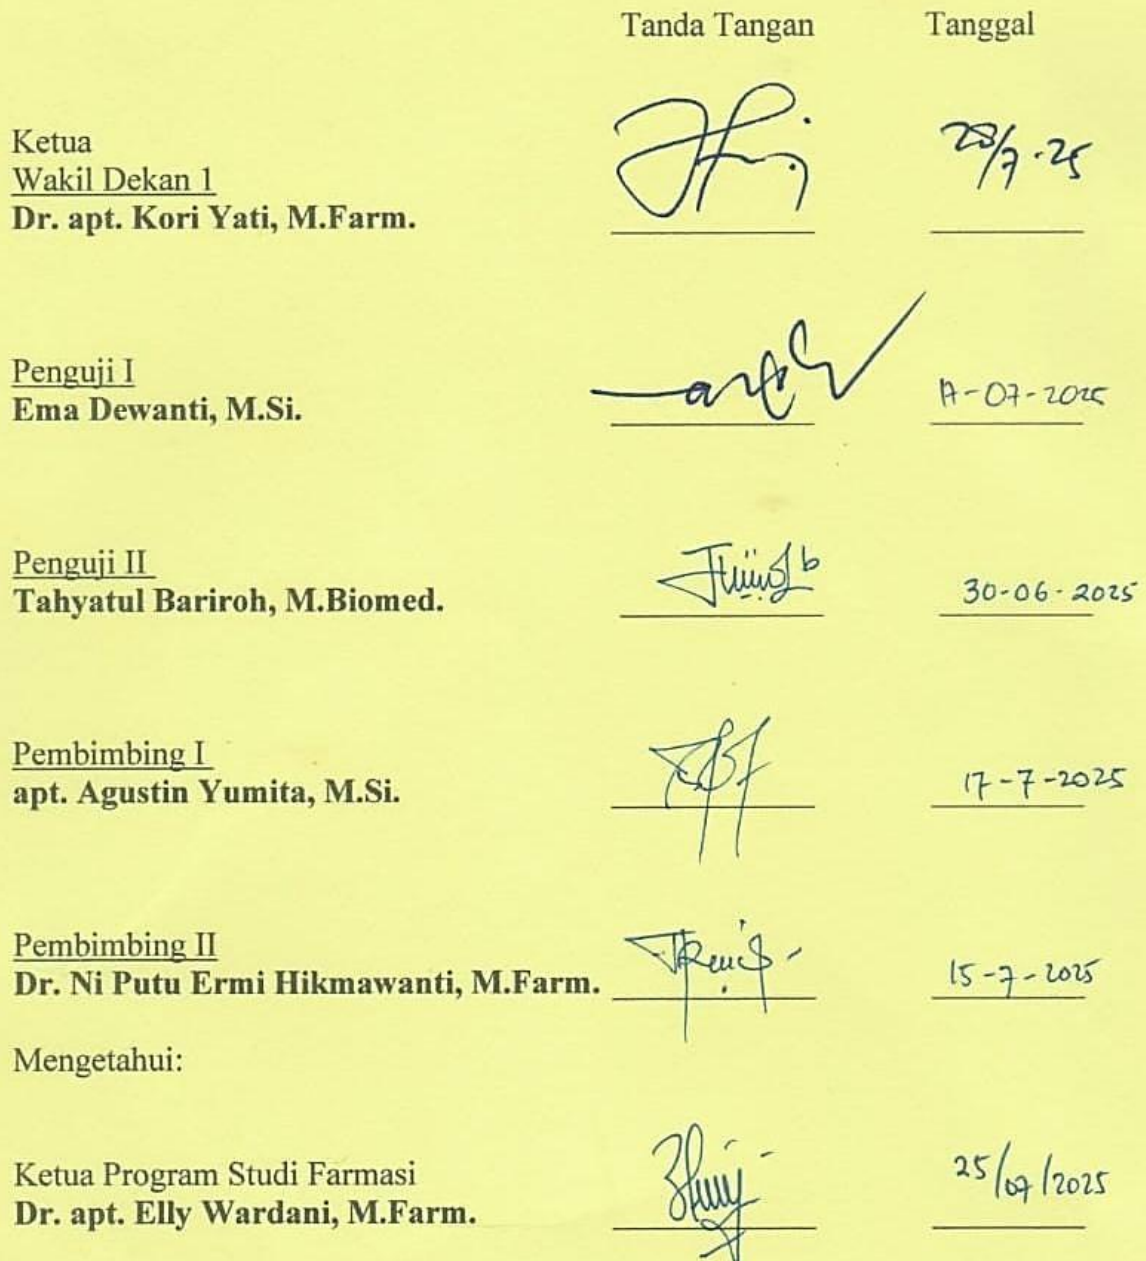 Tanda Tangan Tanggal
Ketua
Wakil Dekan 1
Dr. apt. Kori Yati, M.Farm. 28/7-25
Penguji I
Ema Dewanti, M.Si. 17-07-2025
Penguji II
Tahyatul Bariroh, M.Biomed. 30-06-2025
Pembimbing I
apt. Agustin Yumita, M.Si. 17-7-2025
Pembimbing II
Dr. Ni Putu Ermi Hikmawanti, M.Farm. 15-7-2025
Mengetahui:
Ketua Program Studi Farmasi
Dr. apt. Elly Wardani, M.Farm. 25/07/2025